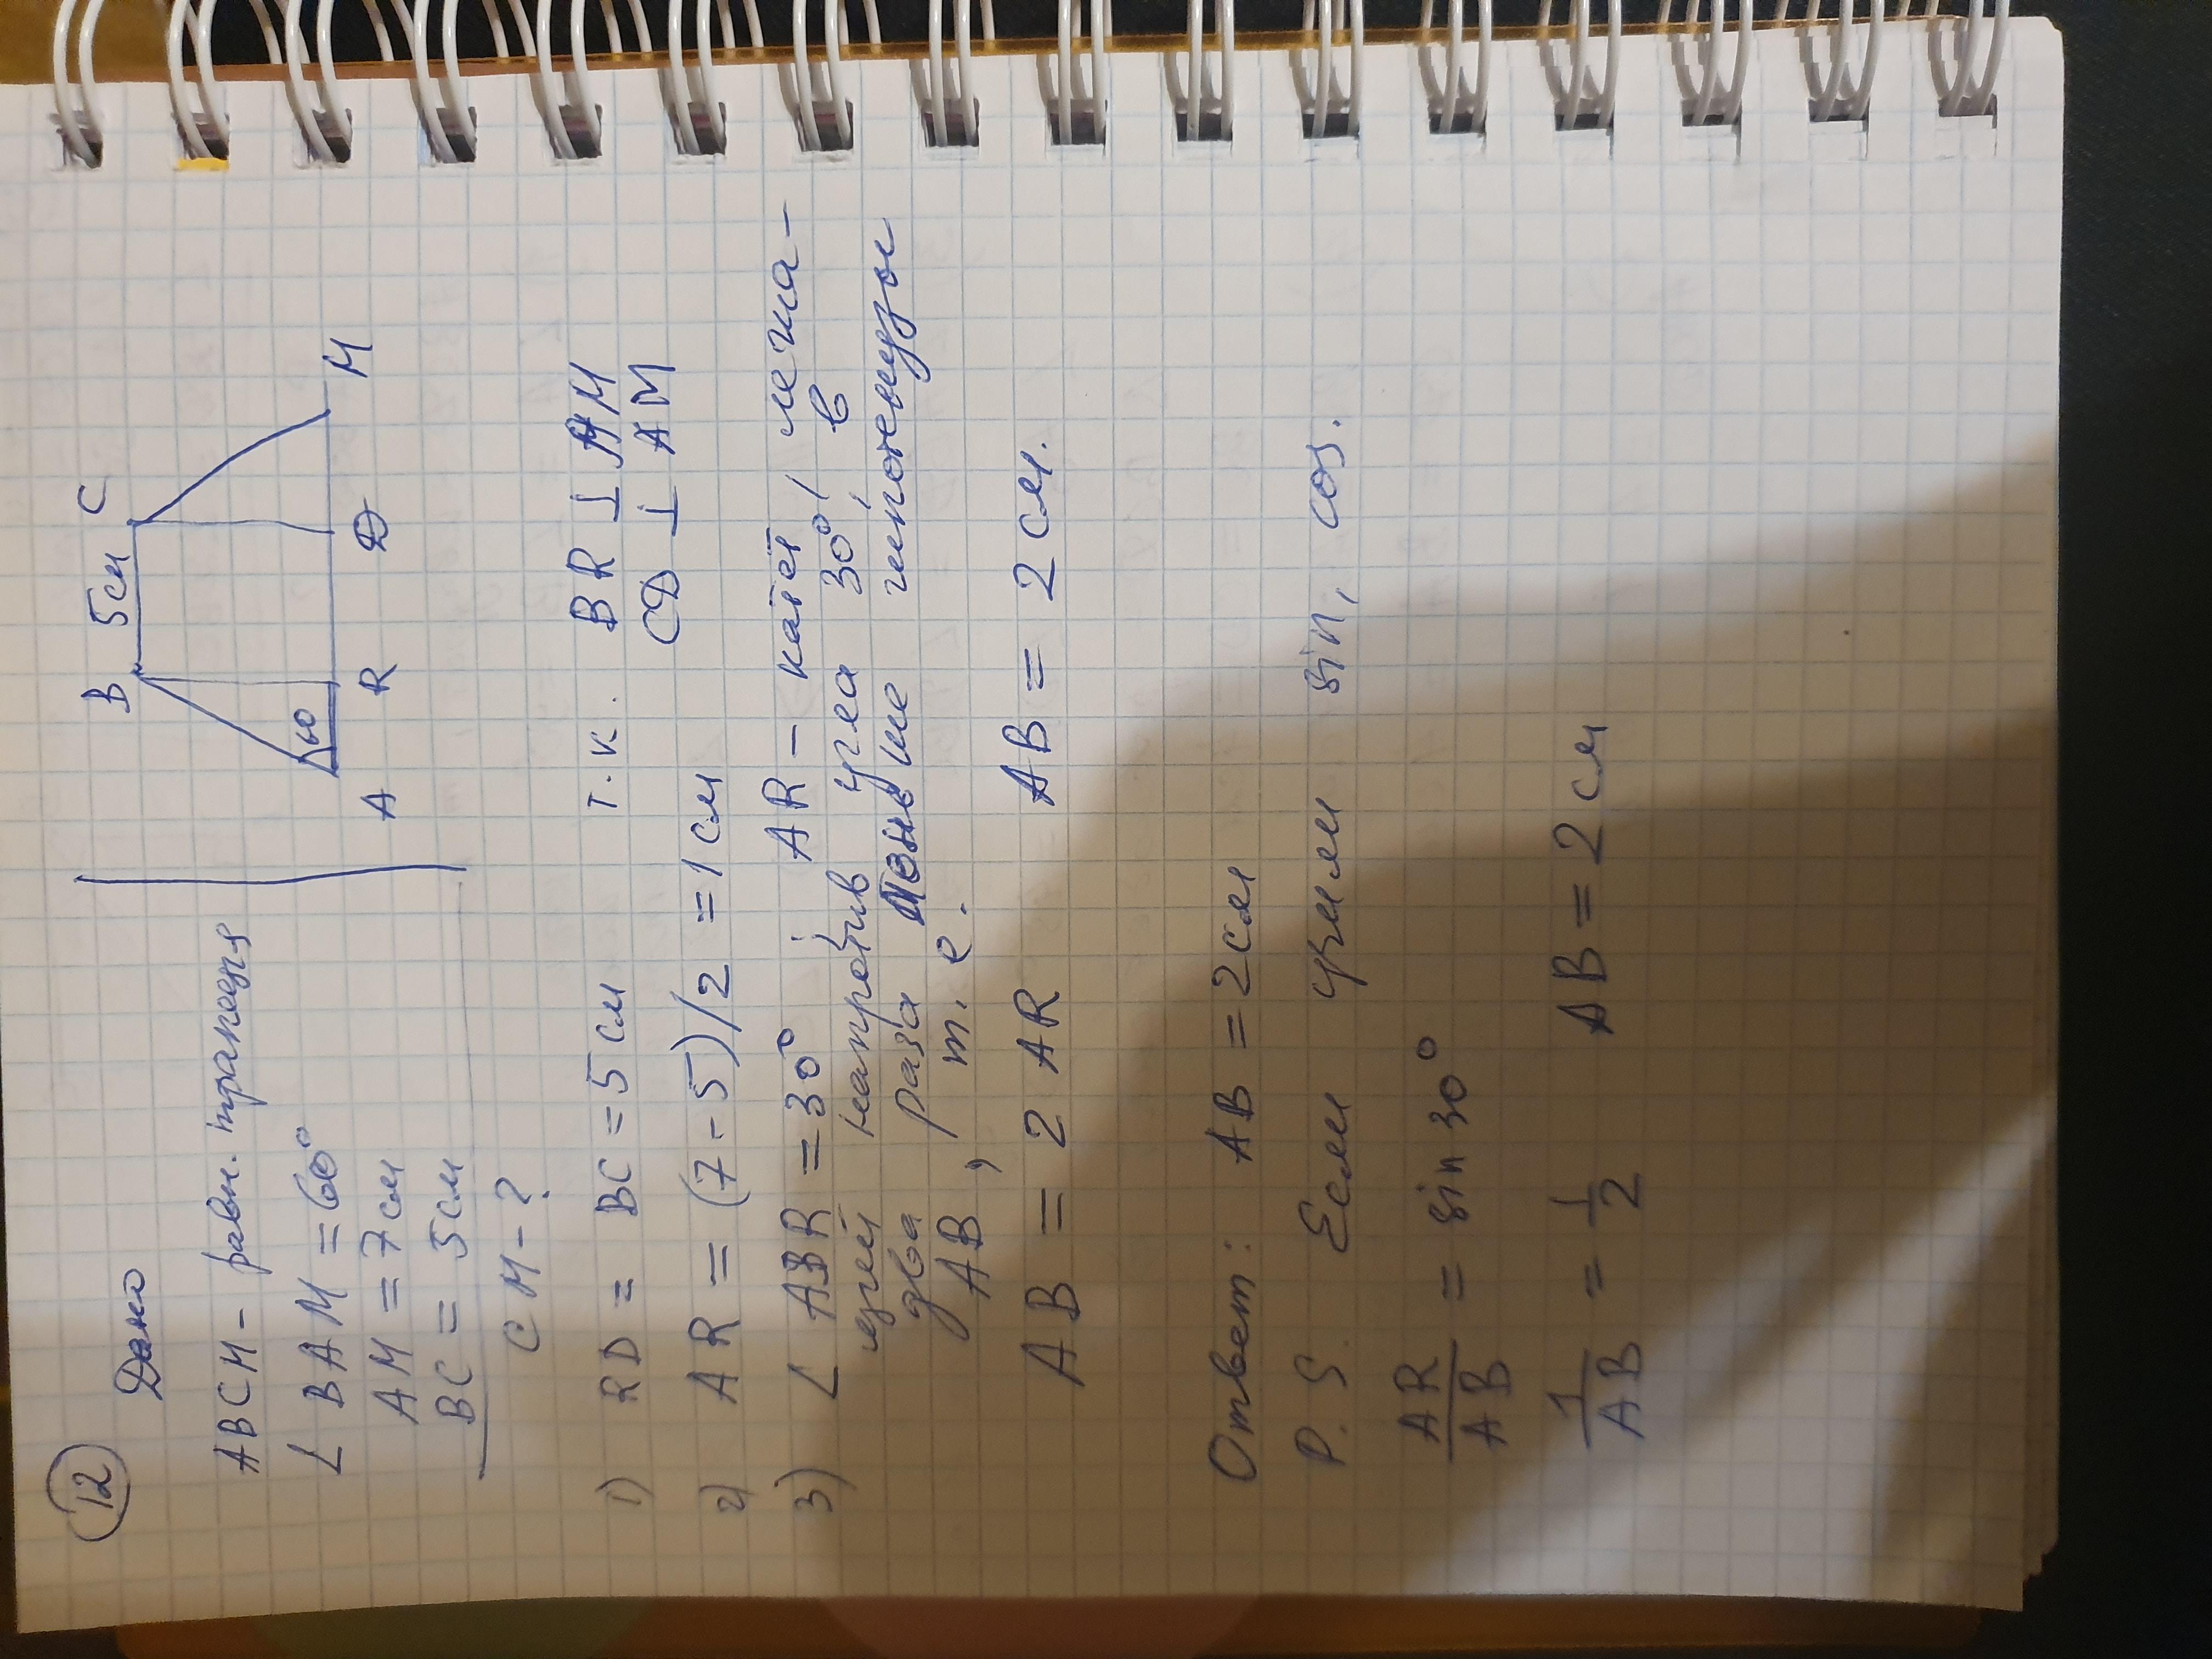 12
Дано
B 5см C
60
A R D M
ABCM - равн. трапеция
∠ BAM = 60°
AM = 7 см
BC = 5 см
CM - ?
1) RD = BC = 5 см т.к. BR ⊥ AM
CD ⊥ AM
2) AR = (7 - 5)/2 = 1 см
3) ∠ ABR = 30° ; AR - катет лежа-
щей напротив угла 30°, в
два раза меньше гипотенузы
AB, т. е.
AB = 2 AR AB = 2 см.
Ответ: AB = 2 см
P. S. Если учили sin, cos.
AR/AB = sin 30°
1/AB = 1/2 AB = 2 см